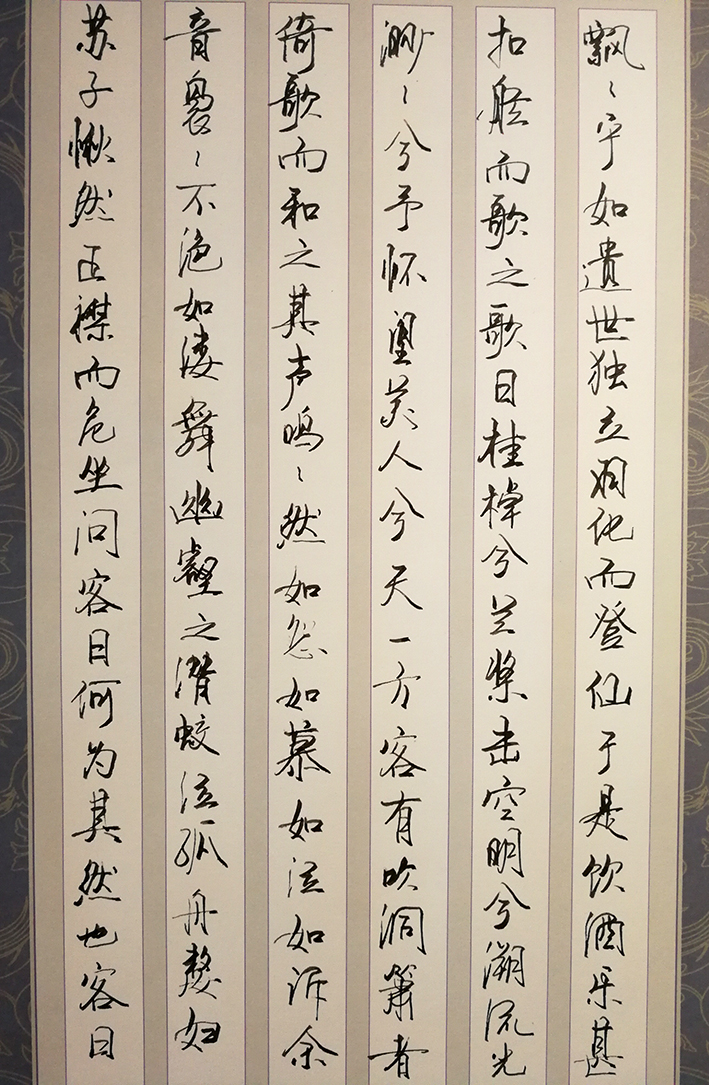 飘〻乎如遗世独立羽化而登仙于是饮酒乐甚
扣舷而歌之歌曰桂棹兮兰桨击空明兮溯流光
渺〻兮予怀望美人兮天一方客有吹洞箫者
倚歌而和之其声呜〻然如怨如慕如泣如诉余
音袅〻不绝如缕舞幽壑之潜蛟泣孤舟嫠妇
苏子愀然正襟而危坐问客曰何为其然也客曰